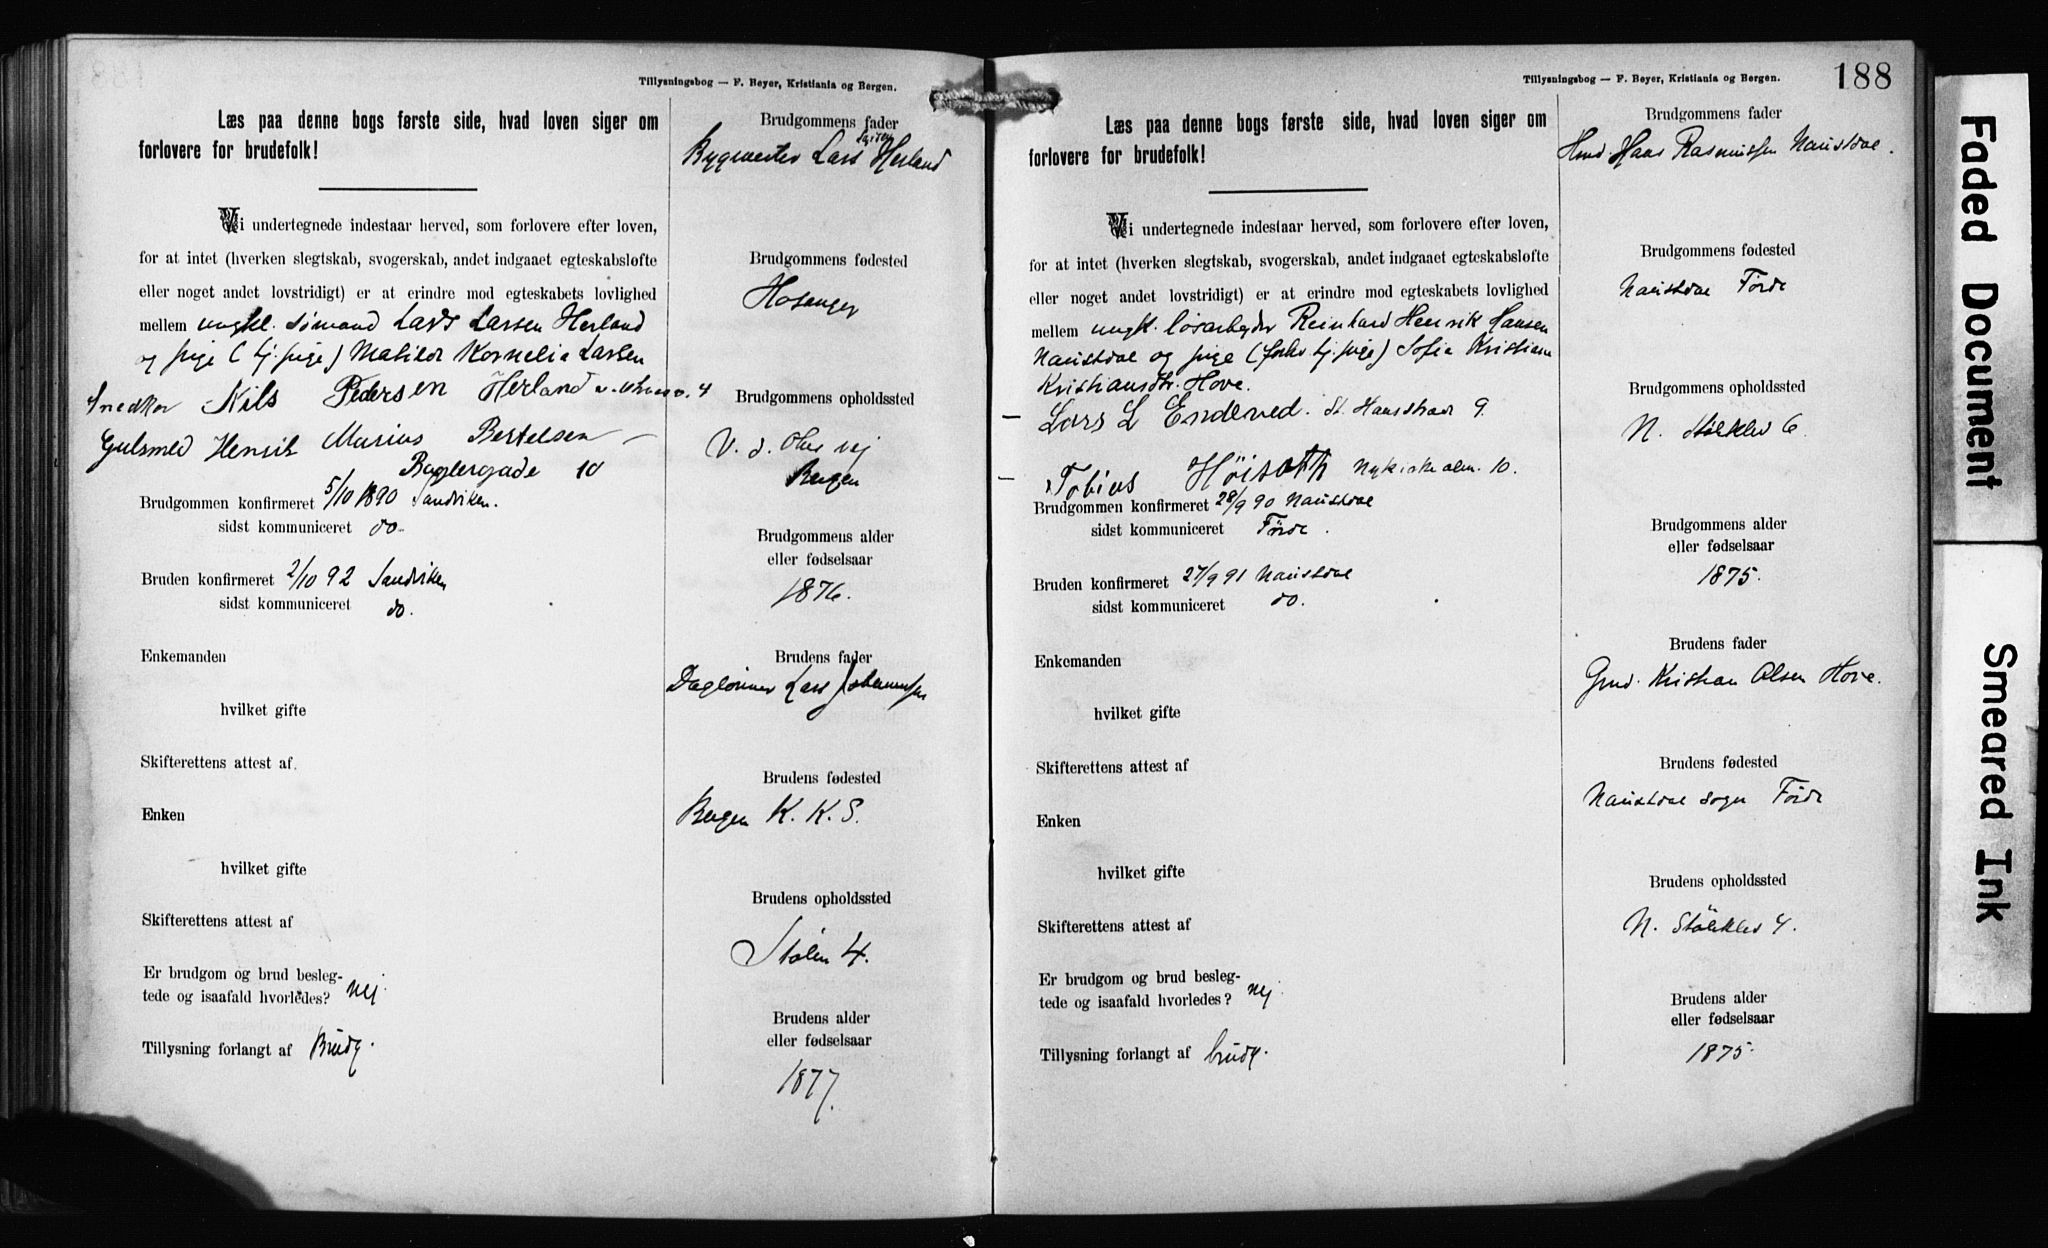 Tillysningsbog — F. Beyer, Kristiania og Bergen.
Læs paa denne bogs første side, hvad loven siger om
forlovere for brudefolk!
Vi undertegnede indestaar herved, som forlovere efter loven,
for at intet (hverken slegtskab, svogerskab, andet indgaaet egteskabsløfte
eller noget andet lovstridigt) er at erindre mod egteskabets lovlighed
mellem ungkl. sømand Lars Larsen Herland
og pige (tj. pige) Matilde Kornelia Larsen
Snedker Nils Pedersen Herland 4
Gulsmed Henrik Marius Bertelsen —
Baglergade 10
Brudgommen konfirmeret 5/10 1890 Sandviken.
sidst kommuniceret do.
Bruden konfirmeret 2/10 92 Sandviken
sidst kommuniceret do.
Enkemanden
hvilket gifte
Skifterettens attest af
Enken
hvilket gifte
Skifterettens attest af
Er brudgom og brud besleg-
tede og isaafald hvorledes? nej.
Tillysning forlangt af Brudg.
Brudgommens fader
Bygmester Lars Herland
Brudgommens fødested
Hosanger
Brudgommens opholdssted
V. d. Ole vej
Bergen
Brudgommens alder
eller fødselsaar
1876.
Brudens fader
Daglønner Lars Johannessen
Brudens fødested
Bergen K. K. S.
Brudens opholdssted
Stølen 4.
Brudens alder
eller fødselsaar
1877.
Tillysningsbog — F. Beyer, Kristiania og Bergen.
188
Læs paa denne bogs første side, hvad loven siger om
forlovere for brudefolk!
Vi undertegnede indestaar herved, som forlovere efter loven,
for at intet (hverken slegtskab, svogerskab, andet indgaaet egteskabsløfte
eller noget andet lovstridigt) er at erindre mod egteskabets lovlighed
mellem ungk. løsarbejder Reinhard Henrik Hansen
Naustdal og pige (forhv. tj. pige) Sofie Kristiane
Kristiansdtr. Hove.
— Lars L Endeved. St. Hansstræde 9.
— Tobias Höisæth Nykirkealm. 10.
Brudgommen konfirmeret 28/9 90 Naustdal
sidst kommuniceret Förde.
Bruden konfirmeret 27/9 91 Naustdal
sidst kommuniceret do.
Enkemanden
hvilket gifte
Skifterettens attest af
Enken
hvilket gifte
Skifterettens attest af
Er brudgom og brud besleg-
tede og isaafald hvorledes? nej.
Tillysning forlangt af brudg.
Brudgommens fader
Hmd. Hans Rasmussen Naustdal.
Brudgommens fødested
Naustdal Förde
Brudgommens opholdssted
N. Stølklev 6.
Brudgommens alder
eller fødselsaar
1875.
Brudens fader
Gmd. Kristian Olsen Hove.
Brudens fødested
Naustdal sogn Förde
Brudens opholdssted
N. Stölklev 4.
Brudens alder
eller fødselsaar
1875.
Faded Document
Smeared Ink